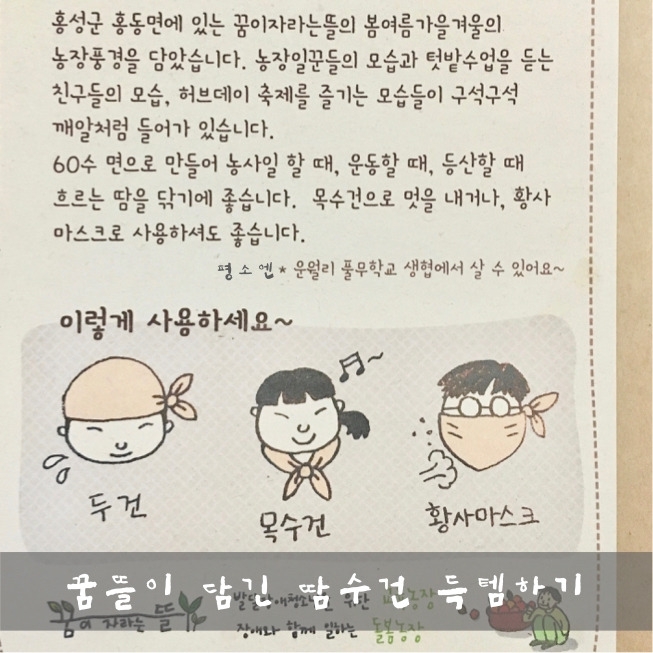 홍성군 홍동면에 있는 꿈이자라는뜰의 봄여름가을겨울의
농장풍경을 담았습니다. 농장일꾼들의 모습과 텃밭수업을 듣는
친구들의 모습, 허브데이 축제를 즐기는 모습들이 구석구석
깨알처럼 들어가 있습니다.
60수 면으로 만들어 농사일 할 때, 운동할 때, 등산할 때
흐르는 땀을 닦기에 좋습니다. 목수건으로 멋을 내거나, 황사
마스크로 사용하셔도 좋습니다.
평소엔 * 운월리 풀무학교 생협에서 살 수 있어요~
이렇게 사용하세요~
두건
목수건
황사마스크
꿈뜰이 담긴 땀수건 득템하기
꿈이 자라는 뜰
발달장애청소년을 위한 농장
장애와 함께 일하는 돌봄농장